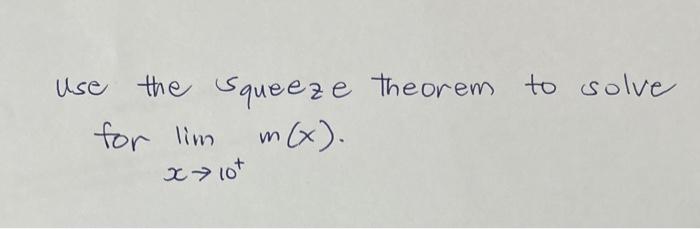 use the squeeze theorem to solve
for lim m(x).
x→10⁺